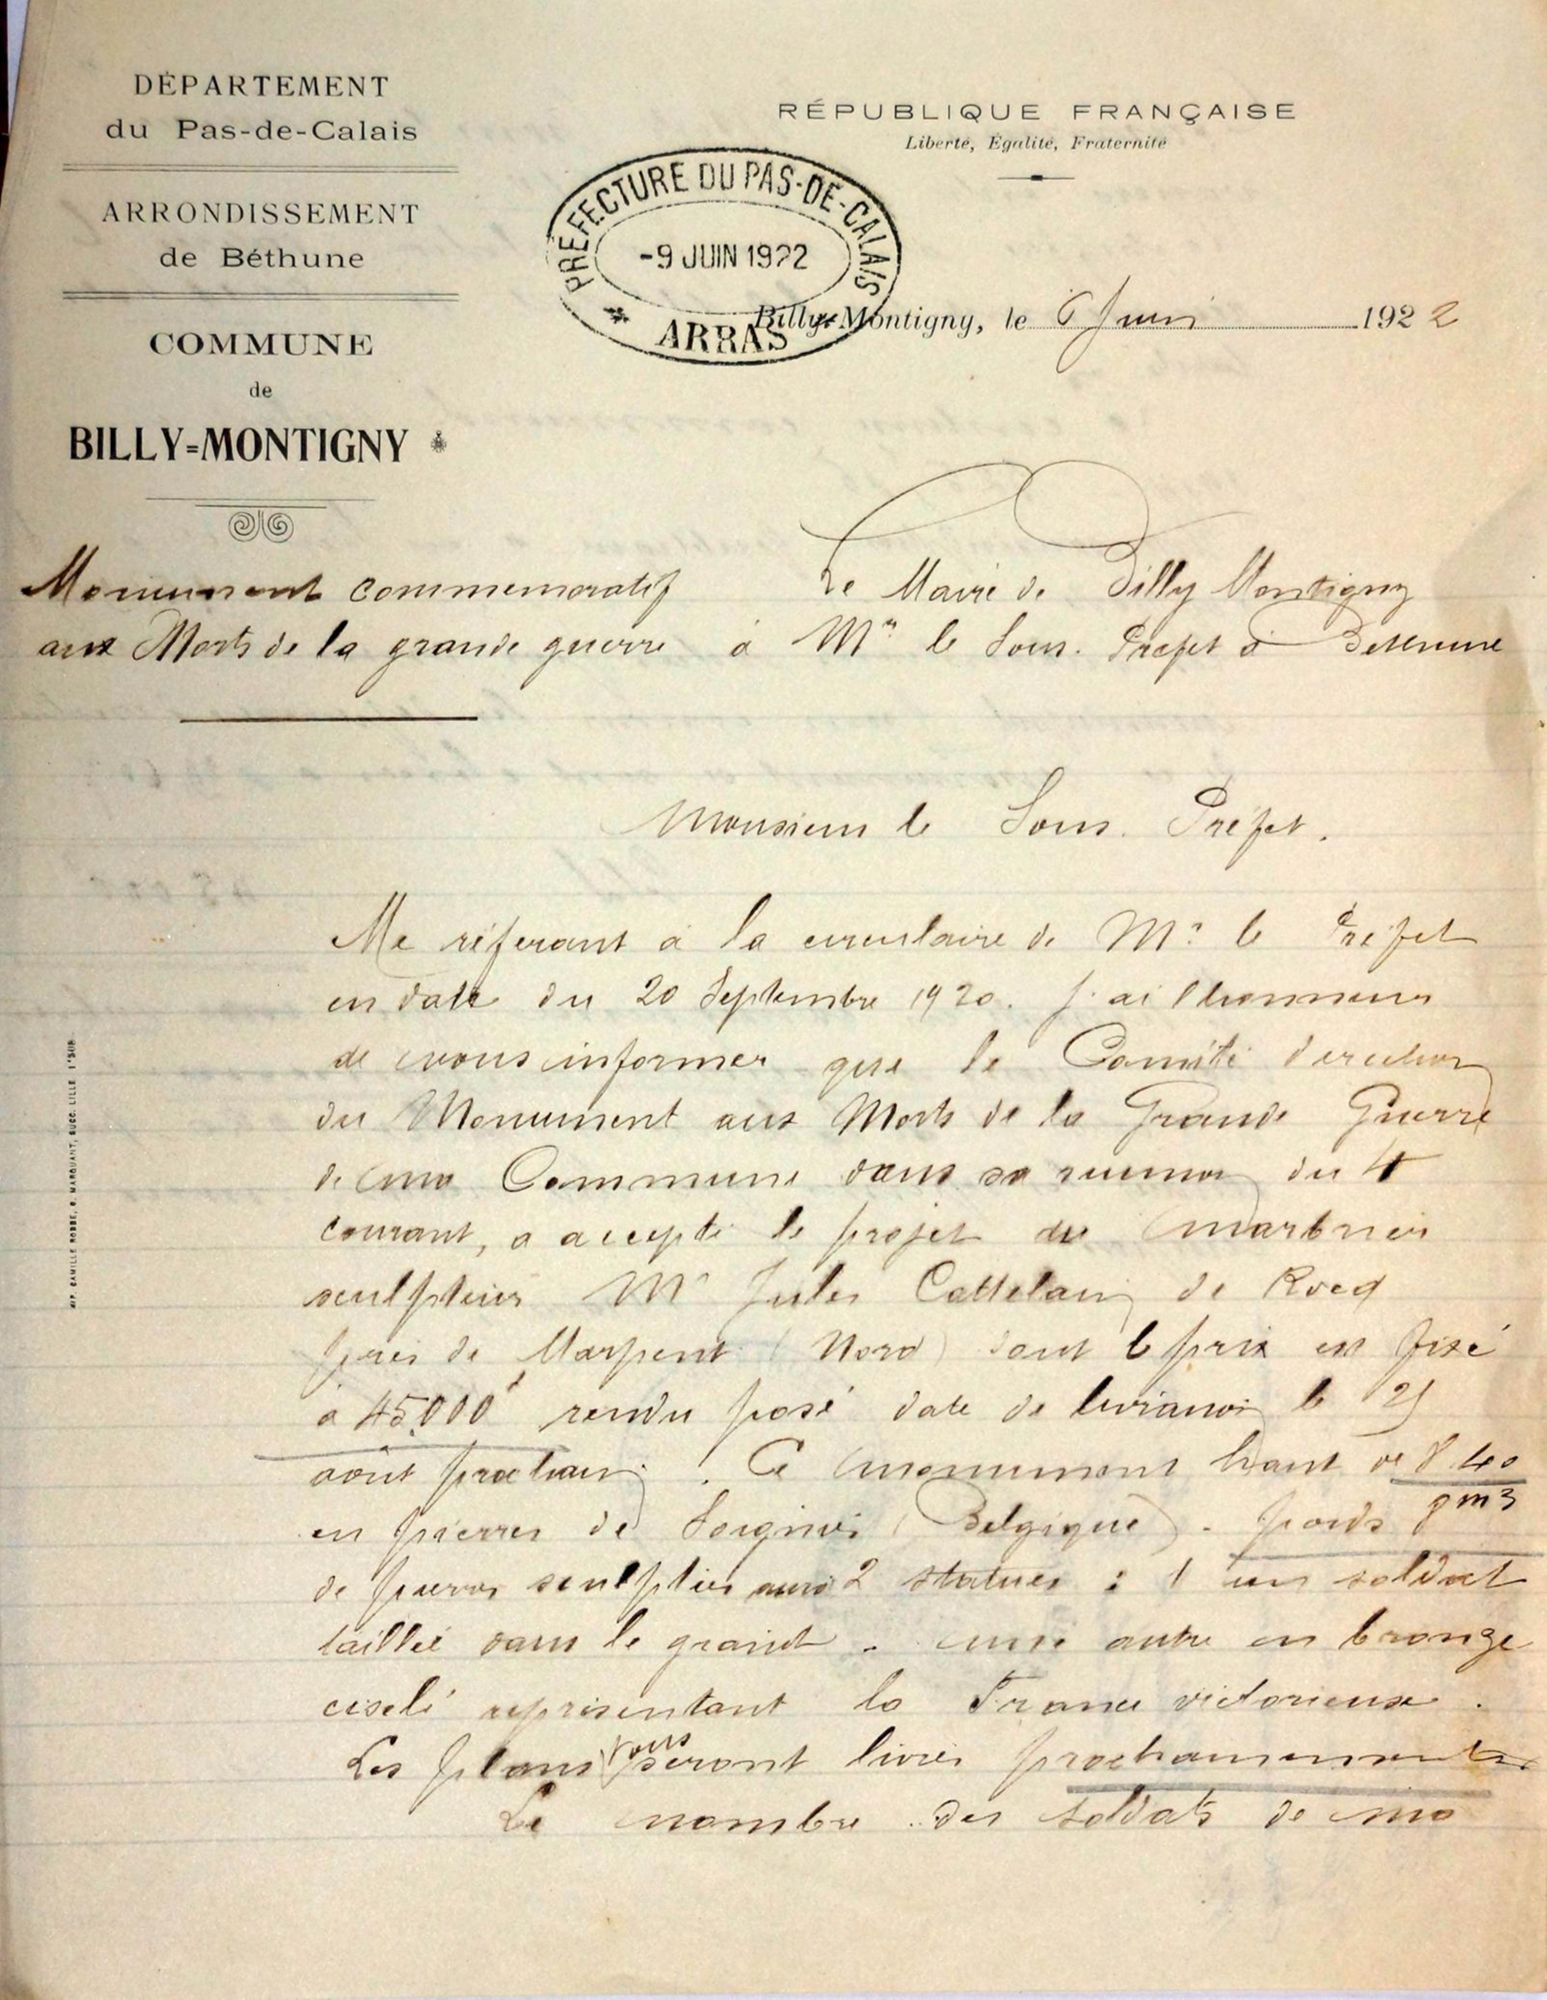 DÉPARTEMENT
du Pas-de-Calais
ARRONDISSEMENT
de Béthune
COMMUNE
de
BILLY=MONTIGNY
RÉPUBLIQUE FRANÇAISE
Liberté, Égalité, Fraternité
PRÉFECTURE DU PAS-DE-CALAIS
-9 JUIN 1922
* ARRAS *
Billy-Montigny, le 6 Juin 1922
Monument commemoratif
aux Morts de la grande guerre
Le Maire de Billy Montigny
à Mr le Sous-Préfet à Bethune
Monsieur le Sous-Préfet.
Me réferant à la circulaire de Mr le Préfet
en date du 20 Septembre 1920. J'ai l'honneur
de vous informer que le Comité d'erection
du Monument aux Morts de la Grande Guerre
de ma Commune dans sa reunion du 4
courant, a accepté le projet du marbrier
sculpteur Mr Jules Cattelain de Rocq
près de Marpent (Nord) dont le prix est fixé
à 45.000f rendu posé date de livraison le 25
août prochain. Ce monument haut de 8.40
en pierres de Soignies (Belgique) - poids 9m3
de pierres sculptées aura 2 statues : 1 un soldat
taillée dans le granit - une autre en bronze
ciselé représentant la France victorieuse.
Les plans vous seront livrés prochainement
Le nombre des soldats de ma
IMP. CAMILLE ROBBE, R. MARQUANT, SUCC. LILLE